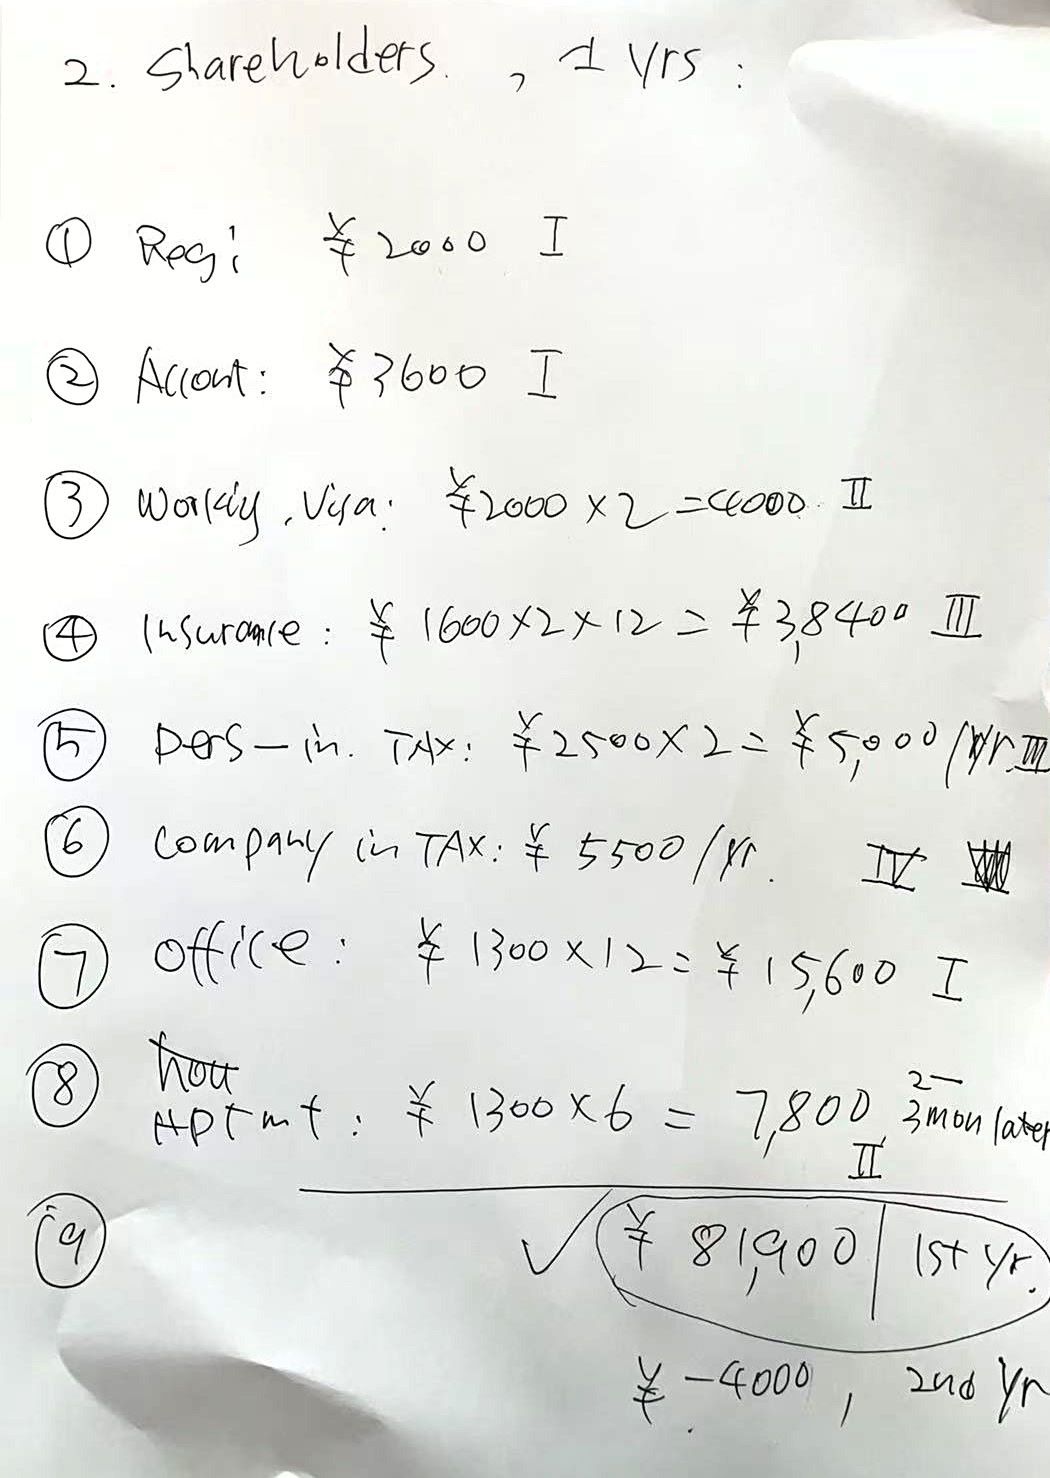 2. Shareholders. , 1 yrs :
① Regi ¥2000 I
② Account: ¥3600 I
③ Workig . Visa: ¥2000 × 2 = 4000. II
④ Insurance : ¥ 1600 × 2 × 12 = ¥ 3,8400 III
⑤ pers - in. TAX: ¥2500 × 2 = ¥5,000 / yr. III
⑥ Company in TAX: ¥ 5500 / yr. IV
⑦ office : ¥ 1300 × 12 = ¥ 15,600 I
hou
2-
⑧ APTmt : ¥ 1300 × 6 = 7,800 3mon later
II
⑨ ✓ ¥ 81,900 | 1st yr.
¥ -4000, 2nd yr